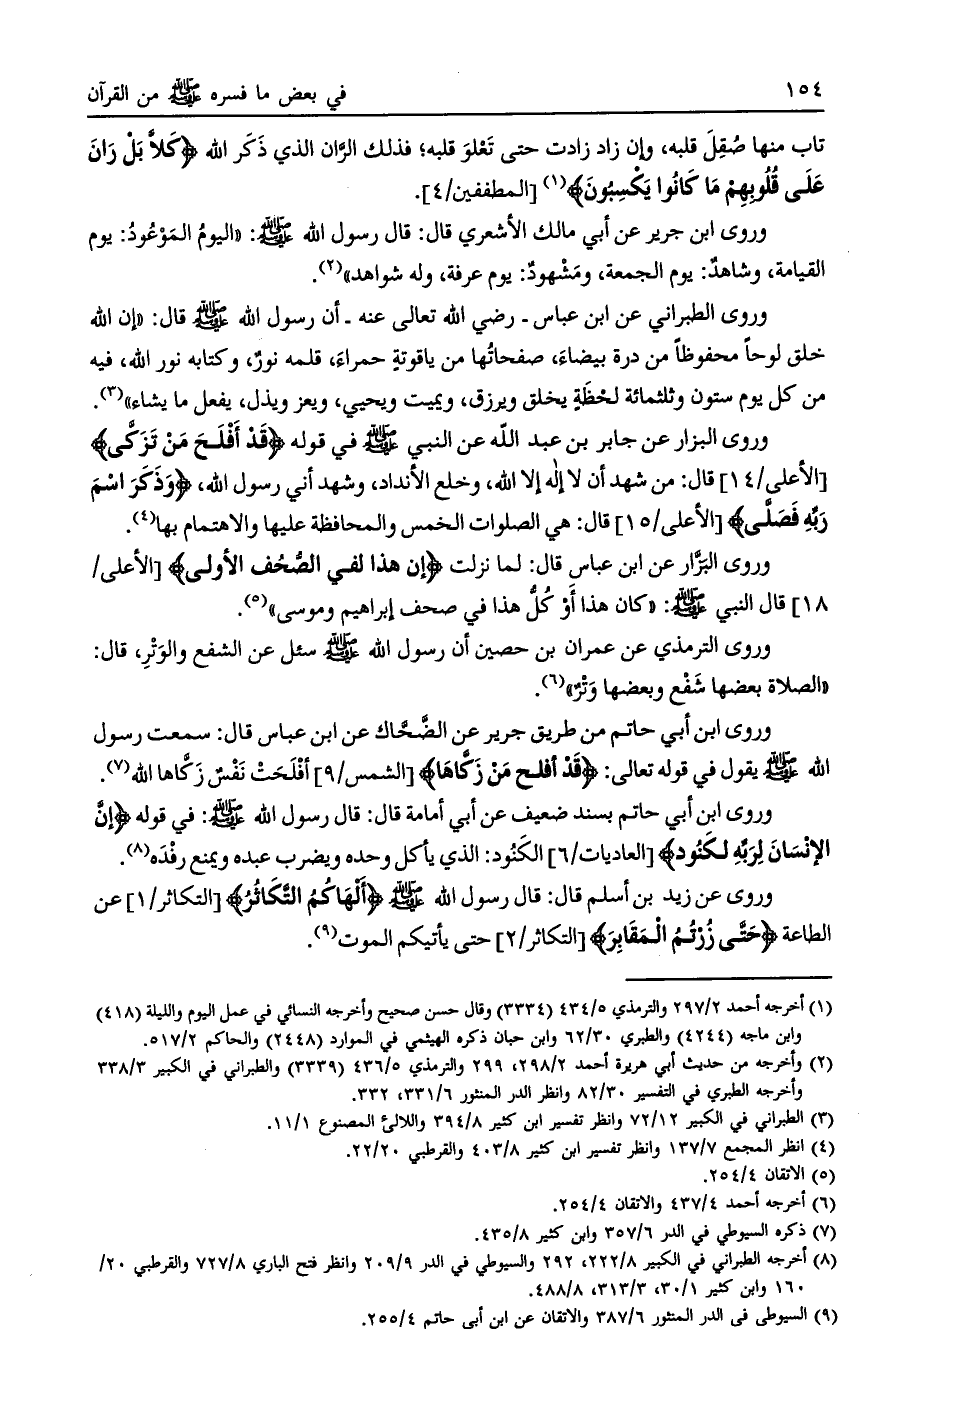 ١٥٤ في بعض ما فسره ﷺ من القرآن
تاب منها صُقِلَ قلبه، وإن زاد زادت حتى تَعْلوَ قلبه؛ فذلك الرَّان الذي ذَكَر الله ﴿كَلاَّ بَلْ رَانَ
عَلَى قُلُوبِهِمْ مَا كَانُوا يَكْسِبُونَ﴾(١) [المطففين/٤].
وروى ابن جرير عن أبي مالك الأشعري قال: قال رسول الله ﷺ: «اليومُ المَوْعُودُ: يوم
القيامة، وشاهدٌ: يوم الجمعة، ومَشْهودٌ: يوم عرفة، وله شواهد»(٢).
وروى الطبراني عن ابن عباس ـ رضي الله تعالى عنه ـ أن رسول الله ﷺ قال: «إن الله
خلق لوحاً محفوظاً من درة بيضاء، صفحاتُها من ياقوتةٍ حمراء، قلمه نورٌ، وكتابه نور الله، فيه
من كل يوم ستون وثلثمائة لحْظَةٍ يخلق ويرزق، ويميت ويحيي، ويعز ويذل، يفعل ما يشاء»(٣).
وروى البزار عن جابر بن عبد اللّه عن النبي ﷺ في قوله ﴿قَدْ أَفْلَحَ مَنْ تَزَكَّى﴾
[الأعلى/١٤] قال: من شهد أن لا إلٰه إلا الله، وخلع الأنداد، وشهد أني رسول الله، ﴿وَذَكَرَ اسْمَ
رَبِّهِ فَصَلَّى﴾ [الأعلى/١٥] قال: هي الصلوات الخمس والمحافظة عليها والاهتمام بها(٤).
وروى البَزَّار عن ابن عباس قال: لما نزلت ﴿إن هذا لفي الصُّحُف الأولى﴾ [الأعلى/
١٨] قال النبي ﷺ: «كان هذا أَوْ كُلُّ هذا في صحف إبراهيم وموسى»(٥).
وروى الترمذي عن عمران بن حصين أن رسول الله ﷺ سئل عن الشفع والوَتْرِ، قال:
«الصلاة بعضها شَفْع وبعضها وَتْرٌ»(٦).
وروى ابن أبي حاتم من طريق جرير عن الضَّحَّاك عن ابن عباس قال: سمعت رسول
الله ﷺ يقول في قوله تعالى: ﴿قَدْ أفلح مَنْ زَكَّاهَا﴾ [الشمس/٩] أفْلَحَتْ نَفْسٌ زَكَّاها الله(٧).
وروى ابن أبي حاتم بسند ضعيف عن أبي أمامة قال: قال رسول الله ﷺ: في قوله ﴿إنَّ
الإنْسَانَ لِرَبِّهِ لكَنُود﴾ [العاديات/٦] الكَنُود: الذي يأكل وحده ويضرب عبده ويمنع رفْدَه(٨).
وروى عن زيد بن أسلم قال: قال رسول الله ﷺ ﴿أَلْهَاكُمُ التَّكَاثُرُ﴾ [التكاثر/١] عن
الطاعة ﴿حَتَّى زُرْتُمُ الْمَقَابِرَ﴾ [التكاثر/٢] حتى يأتيكم الموت(٩).
(١) أخرجه أحمد ٢٩٧/٢ والترمذي ٤٣٤/٥ (٣٣٣٤) وقال حسن صحيح وأخرجه النسائي في عمل اليوم والليلة (٤١٨)
وابن ماجه (٤٢٤٤) والطبري ٦٢/٣٠ وابن حبان ذكره الهيثمي في الموارد (٢٤٤٨) والحاكم ٥١٧/٢.
(٢) وأخرجه من حديث أبي هريرة أحمد ٢٩٨/٢، ٢٩٩ والترمذي ٤٣٦/٥ (٣٣٣٩) والطبراني في الكبير ٣٣٨/٣
وأخرجه الطبري في التفسير ٨٢/٣٠ وانظر الدر المنثور ٣٣١/٦، ٣٣٢.
(٣) الطبراني في الكبير ٧٢/١٢ وانظر تفسير ابن كثير ٣٩٤/٨ واللالئ المصنوع ١١/١.
(٤) انظر المجمع ١٣٧/٧ وانظر تفسير ابن كثير ٤٠٣/٨ والقرطبي ٢٢/٢٠.
(٥) الاتقان ٢٥٤/٤.
(٦) أخرجه أحمد ٤٣٧/٤ والاتقان ٢٥٤/٤.
(٧) ذكره السيوطي في الدر ٣٥٧/٦ وابن كثير ٤٣٥/٨.
(٨) أخرجه الطبراني في الكبير ٢٢٢/٨، ٢٩٢ والسيوطي في الدر ٢٠٩/٩ وانظر فتح الباري ٧٢٧/٨ والقرطبي ٢٠/
١٦٠ وابن كثير ٣٠/١، ٣١٣/٣، ٤٨٨/٨.
(٩) السيوطي في الدر المنثور ٣٨٧/٦ والاتقان عن ابن أبي حاتم ٢٥٥/٤.